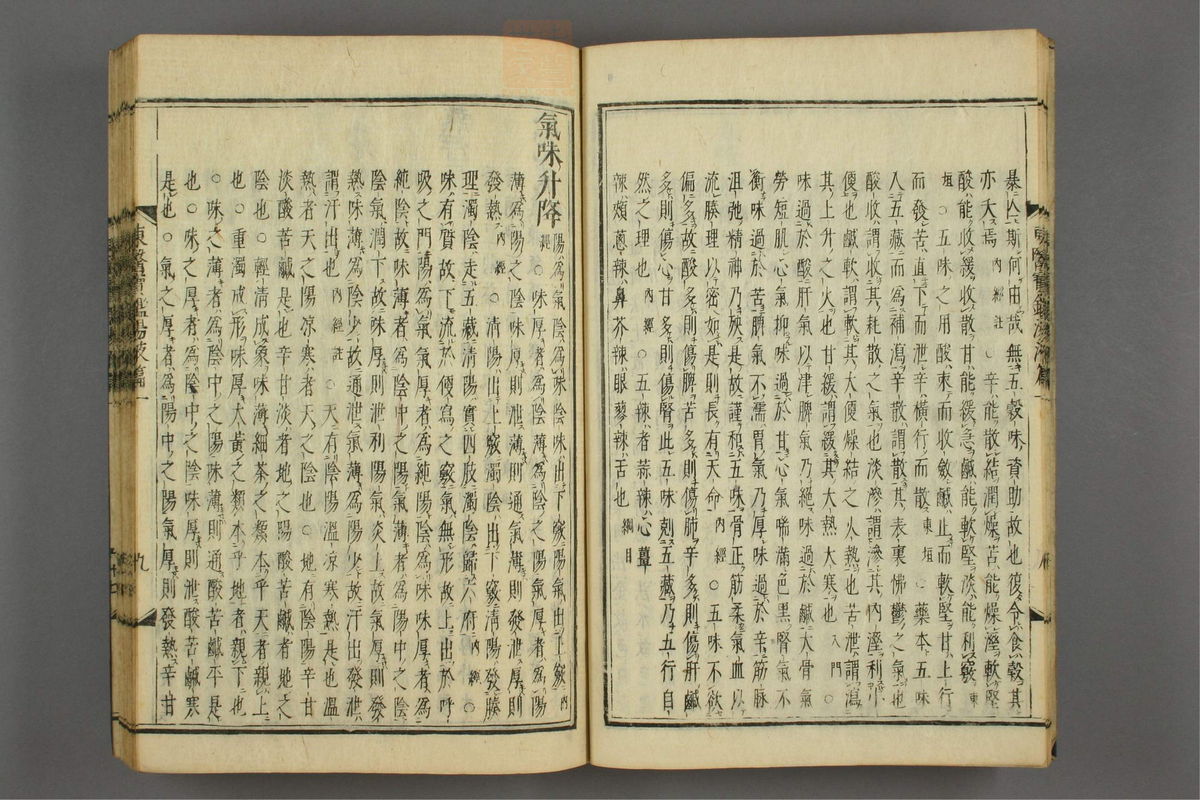 暴亾斯何由哉無五穀味資助故也復令食穀其
亦夭焉內經註○辛能散結潤燥苦能燥溼軟堅
酸能收緩收散甘能緩急鹹能軟堅淡能利竅東
垣○五味之用酸束而收斂鹹止而軟堅甘上行
而發苦直下而泄辛橫行而散東垣○藥本五味
人五藏而爲補瀉辛散謂散其表裏怫鬱之氣也
酸收謂收其耗散之氣也淡滲謂滲其內溼利小
便也鹹軟謂軟其大便燥結之火熱也苦泄謂瀉
其上升之火也甘緩謂緩其大熱大寒也入門○
味過於酸肝氣以津脾氣乃絕味過於鹹大骨氣
勞短肌心氣抑味過於甘心氣喘滿色黑腎氣不
衡味過於苦脾氣不濡胃氣乃厚味過於辛筋脉
沮弛精神乃殃是故謹和五味骨正筋柔氣血以
流腠理以密如是則長有天命內經○五味不欲
偏多故酸多則傷脾苦多則傷肺辛多則傷肝鹹
多則傷心甘多則傷腎此五味剋五藏乃五行自
然之理也內經○五辣者蒜辣心薑
辣頰蔥辣鼻芥辣眼蓼辣舌也綱目
氣味升降陽爲氣陰爲味陰味出下竅陽氣出上竅內
經○味厚者爲陰薄爲陰之陽氣厚者爲陽
薄爲陽之陰味厚則泄薄則通氣薄則發泄厚則
發熱內經○清陽出上竅濁陰出下竅清陽發腠
理濁陰走五藏清陽實四肢濁陰歸六府內經○
味有質故下流於便寫之竅氣無形故上出於呼
吸之門陽爲氣氣厚者爲純陽陰爲味味厚者爲
純陰故味薄者爲陰中之陽氣薄者爲陽中之陰
陰氣潤下故味厚則泄利陽氣炎上故氣厚則發
熱味薄爲陰少故通泄氣薄爲陽少故汗出發泄
謂汗出也內經註○天有陰陽溫凉寒熱是也溫
熱者天之陽凉寒者天之陰也○地有陰陽辛甘
淡酸苦鹹是也辛甘淡者地之陽酸苦鹹者地之
陰也○輕清成象味薄細茶之類本乎天者親上
也○重濁成形味厚大黃之類本乎地者親下也
○味之薄者爲陰中之陽味薄則通酸苦鹹平是
也○味之厚者爲陰中之陰味厚則泄酸苦鹹寒
是也○氣之厚者爲陽中之陽氣厚則發熱辛甘
東醫寶鑑湯液篇一
九